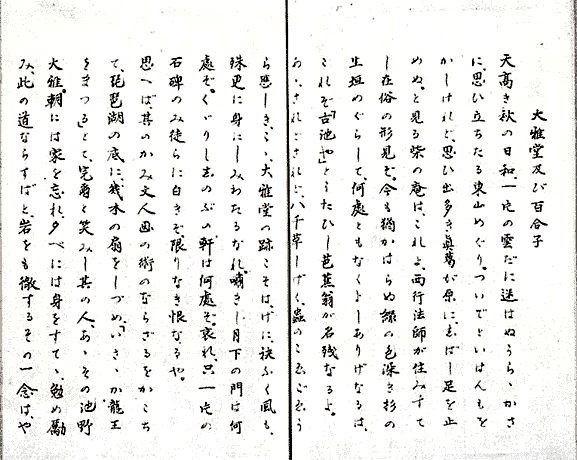 大雅堂及び百合子
天高き秋の日和、一片の雲だに迷はぬうらゝかさ
に、思ひ立ちたる東山めぐり。ついでといはんもを
かしけれど、思ひ出多き眞葛が原に、しばし足を止
めぬ。と見る柴の庵は、これよ、西行法師が住みすて
し在俗の形見ぞ。今も猶かはらぬ緑の色深き杉の
生垣めぐらして、何處ともなくよしありげなるは、
これぞ「古池や」とうたひし芭蕉翁が名残なるよ。
あゝされどされど、八千草しげく蟲のこゑごゑう
ら悲しき、こゝ大雅堂の跡こそは、げに袂ふく風も、
殊更に身にしみわたるなれ。嘯きし月下の門は何
處ぞ。くゞりし志のぶの軒は何處ぞ。哀れ、只一片の
石碑のみ徒らに白きぞ、限りなき恨なるや。
思へば其のかみ文人畫の術のならざるをかこち
て、琵琶湖の底に、幾本の扇をしづめ、「いさゝか龍王
をまつる」とて、完爾と笑みし其の人、あゝその池野
大雅。朝には家を忘れ、夕べには身をすてゝ、勉め勵
み、此の道ならずばと、岩をも徹するその一念は、や